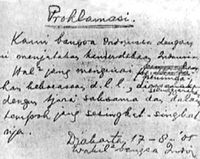 Proklamasi.
Kami bangsa Indonesia dengan
ini menjatakan kemerdekaan Indonesia.
Hal² jang mengenai
kekoeasaan d.l.l.,
dengan tjara saksama dan dalam
tempoh jang sesingkat-singkat-
nja.
Djakarta, 17-8-'05
Wakil² bangsa Indonesia